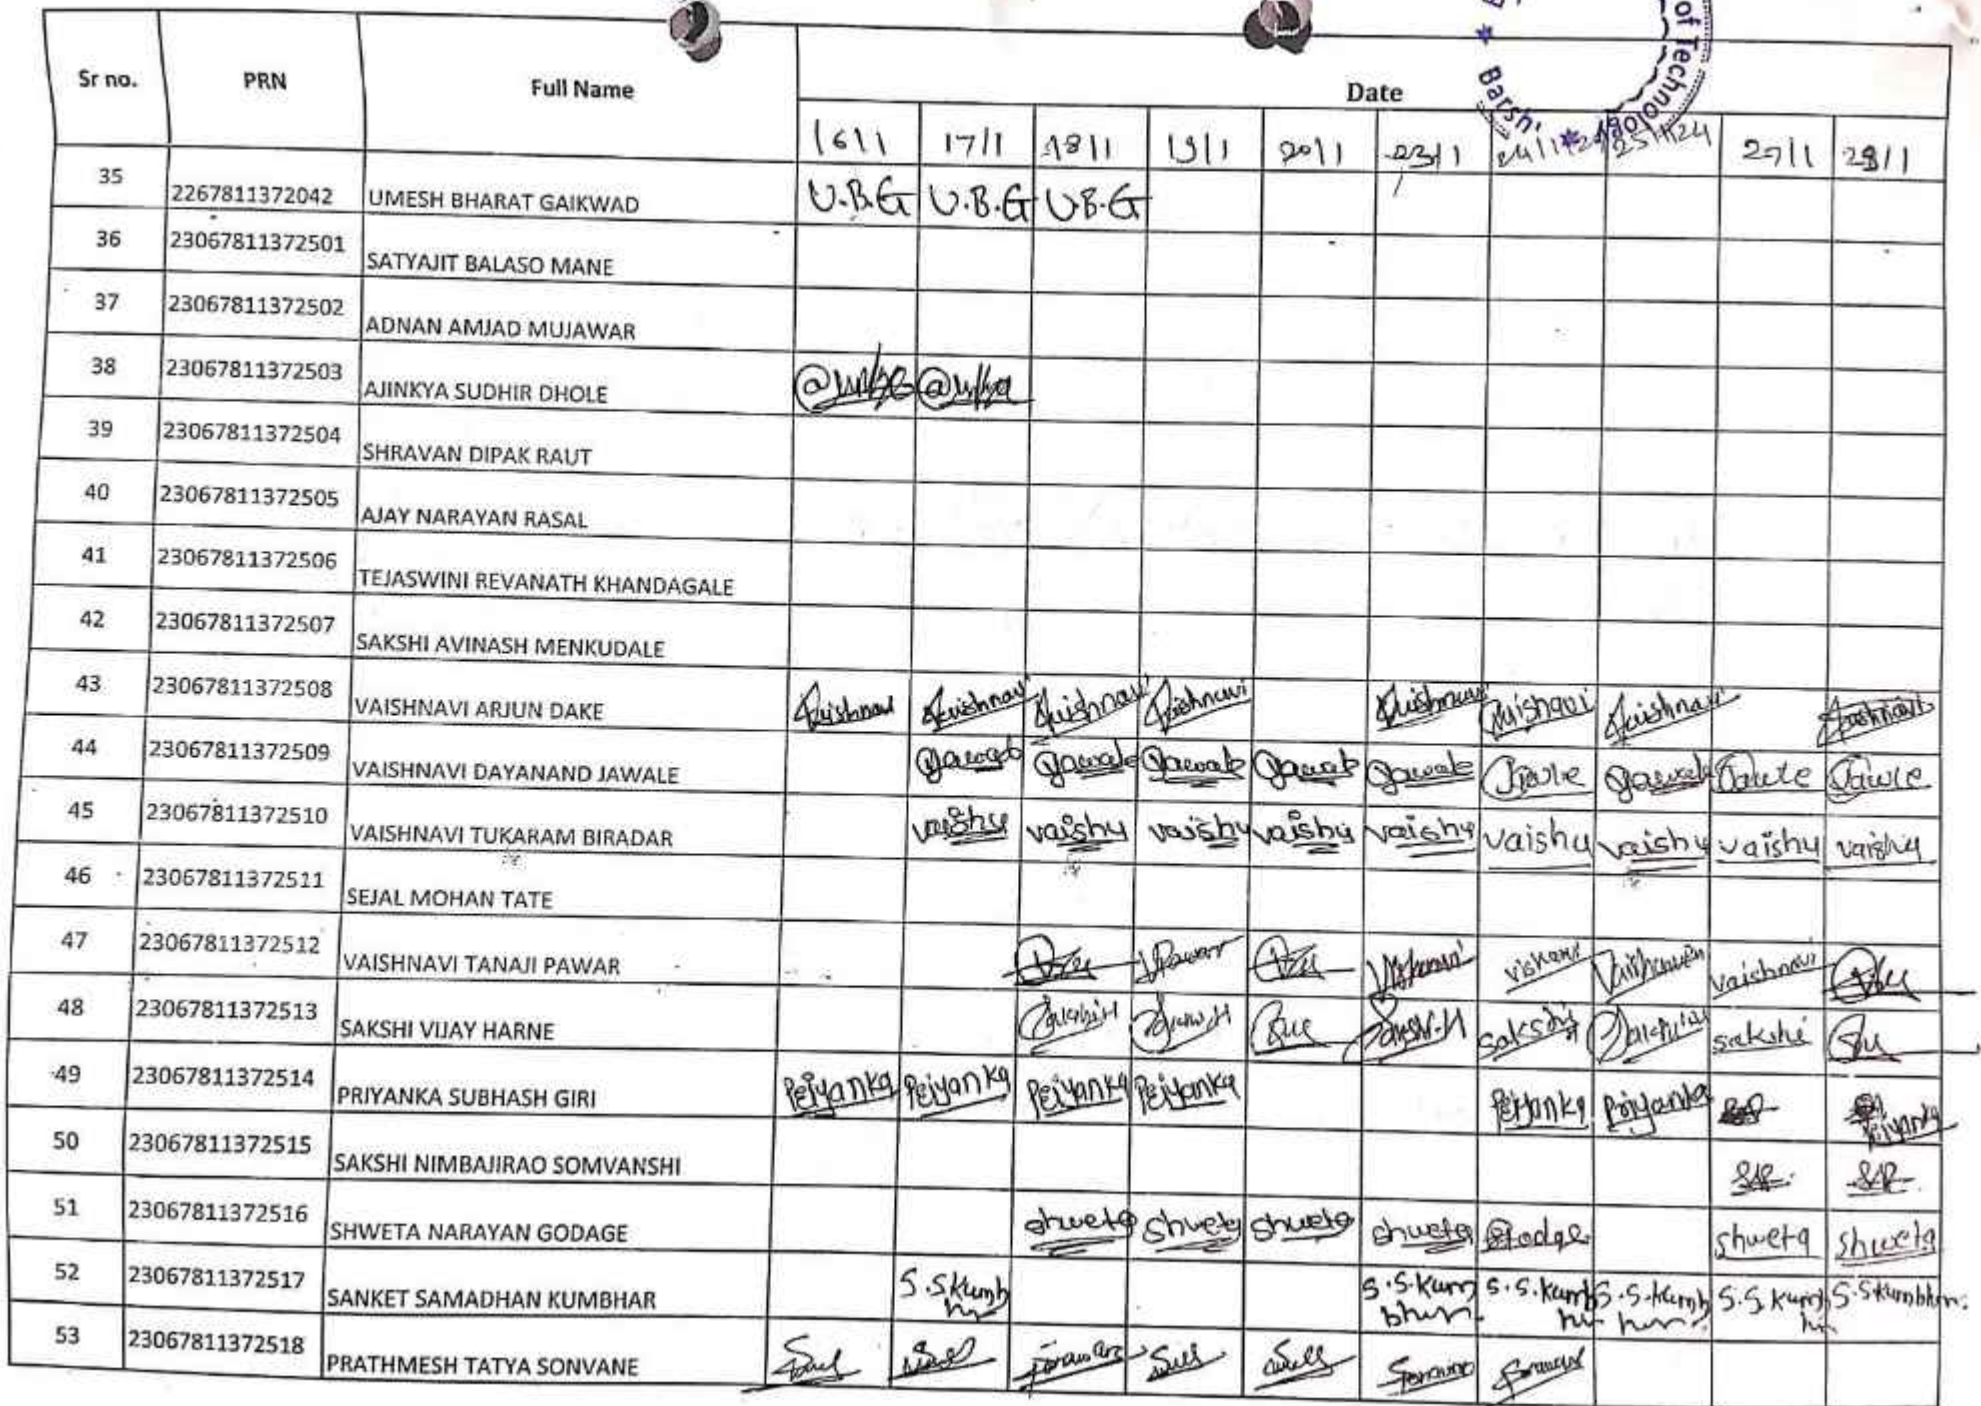 of Technolo
Barshi
Sr no. PRN Full Name Date
16/1 17/1 18/1 19/1 20/1 23/1 24/1/24 25/1/24 27/1 28/1
35 2267811372042 UMESH BHARAT GAIKWAD U.B.G U.B.G U.B.G
36 23067811372501 SATYAJIT BALASO MANE
37 23067811372502 ADNAN AMJAD MUJAWAR
38 23067811372503 AJINKYA SUDHIR DHOLE
39 23067811372504 SHRAVAN DIPAK RAUT
40 23067811372505 AJAY NARAYAN RASAL
41 23067811372506 TEJASWINI REVANATH KHANDAGALE
42 23067811372507 SAKSHI AVINASH MENKUDALE
43 23067811372508 VAISHNAVI ARJUN DAKE Vaishnavi Vaishnavi Vaishnavi Vaishnavi Vaishnavi Vaishnavi Vaishnavi Vaishnavi
44 23067811372509 VAISHNAVI DAYANAND JAWALE Jawale Jawale Jawale Jawale Jawale Jawle Jawale Jawle Jawle
45 23067811372510 VAISHNAVI TUKARAM BIRADAR vaishu vaishu vaishu vaishu vaishu vaishu vaishu vaishu vaishu
46 23067811372511 SEJAL MOHAN TATE
47 23067811372512 VAISHNAVI TANAJI PAWAR VPawar vaishnavi
48 23067811372513 SAKSHI VIJAY HARNE sakshi sakshi
49 23067811372514 PRIYANKA SUBHASH GIRI Priyanka Priyanka Priyanka Priyanka Priyanka Priyanka Priyanka
50 23067811372515 SAKSHI NIMBAJIRAO SOMVANSHI
51 23067811372516 SHWETA NARAYAN GODAGE shweta shweta shweta shweta Godge shweta shweta
52 23067811372517 SANKET SAMADHAN KUMBHAR S.S.Kumbhr S.S.Kumbhr S.S.Kumbhr S.S.Kumbhr S.S.Kumbhr S.S.Kumbhr
53 23067811372518 PRATHMESH TATYA SONVANE